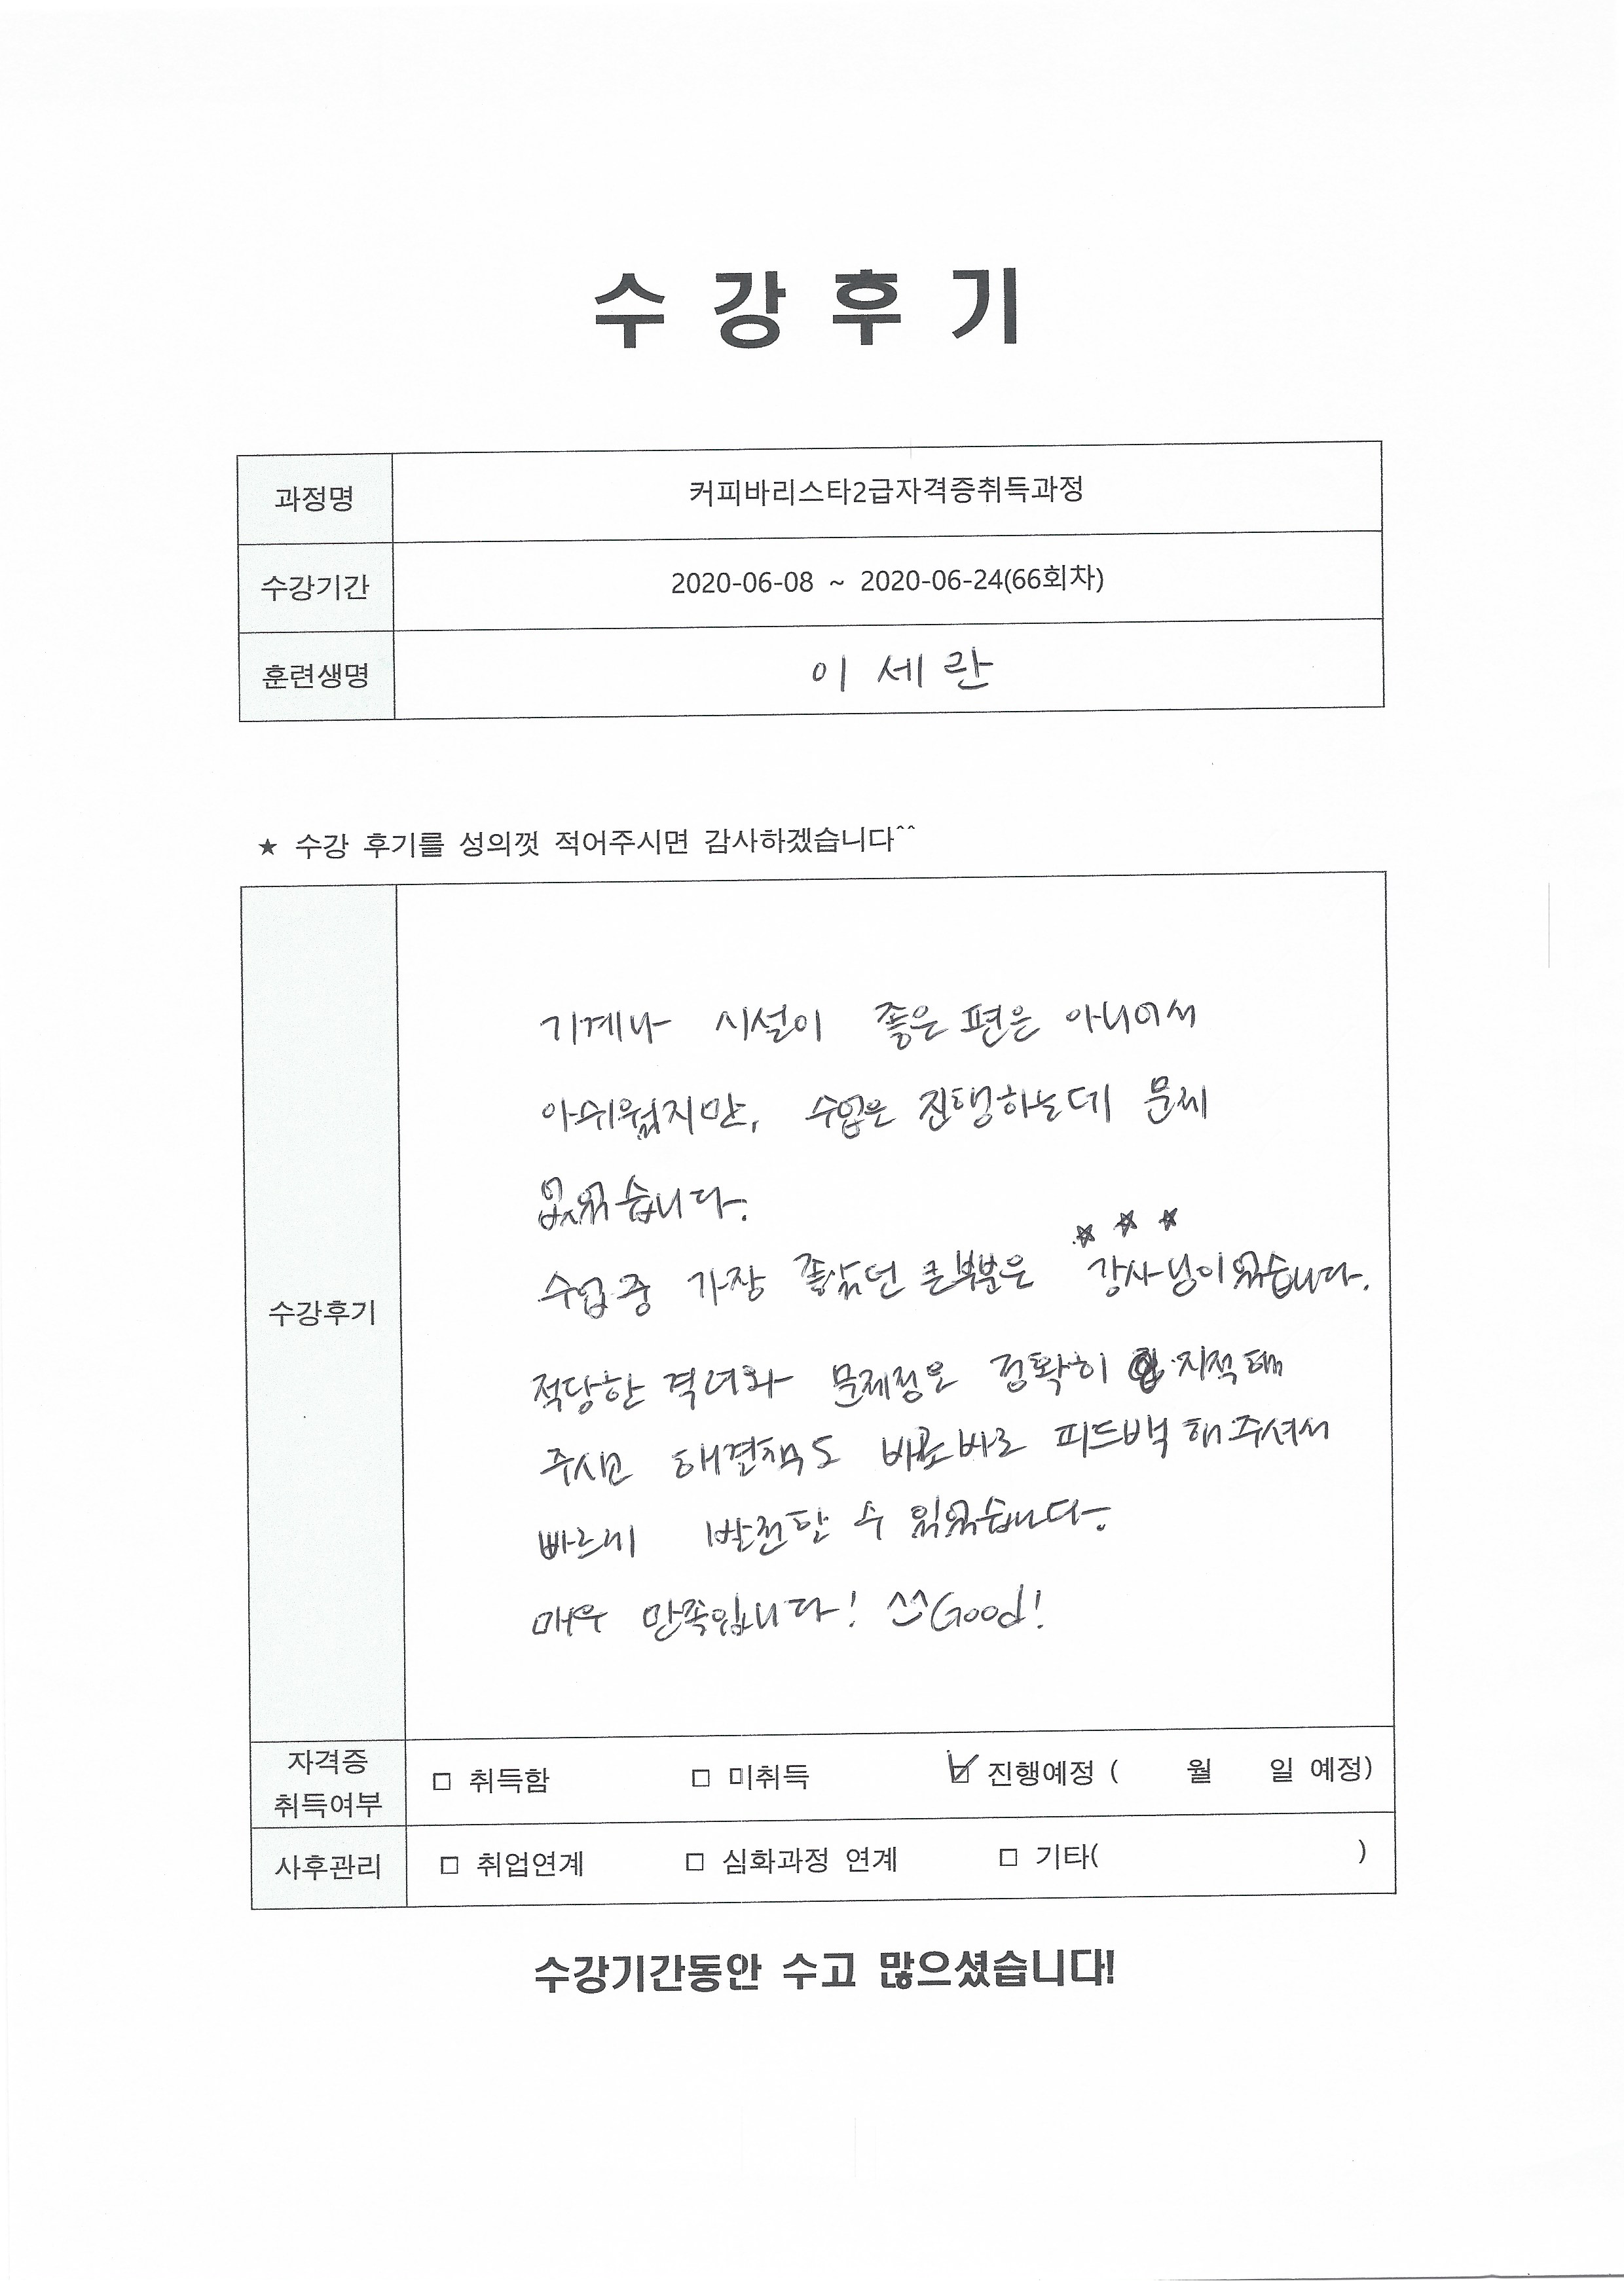 수 강 후 기
과정명 커피바리스타2급자격증취득과정
수강기간 2020-06-08 ~ 2020-06-24(66회차)
훈련생명 이 세 란
★ 수강 후기를 성의껏 적어주시면 감사하겠습니다^^
수강후기
기계나 시설이 좋은 편은 아니어서
아쉬웠지만, 수업은 진행하는데 문제
없었습니다.
☆ ☆ ☆
수업 중 가장 좋았던 큰부분은 강사님이었습니다.
적당한 격려와 문제점은 정확히 지적해
주시고 해결책도 바로바로 피드백 해주셔서
빠르게 발전할 수 있었습니다.
매우 만족입니다! ^^ Good!
자격증
취득여부 □ 취득함 □ 미취득 ☑ 진행예정 ( 월 일 예정)
사후관리 □ 취업연계 □ 심화과정 연계 □ 기타( )
수강기간동안 수고 많으셨습니다!